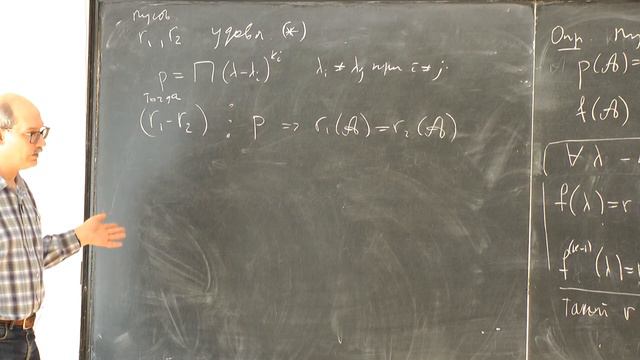 Пусть
r₁, r₂ удовл. (*)
p = ∏ (λ-λᵢ)^kᵢ   λᵢ ≠ λⱼ при i ≠ j.
Тогда
(r₁-r₂) ⋮ p ⇒ r₁(𝒜) = r₂(𝒜)
Опр.
p(𝒜) =
f(𝒜)
∀ λ -
f(λ) = r
f^(k-1) (λ) =
Такой r